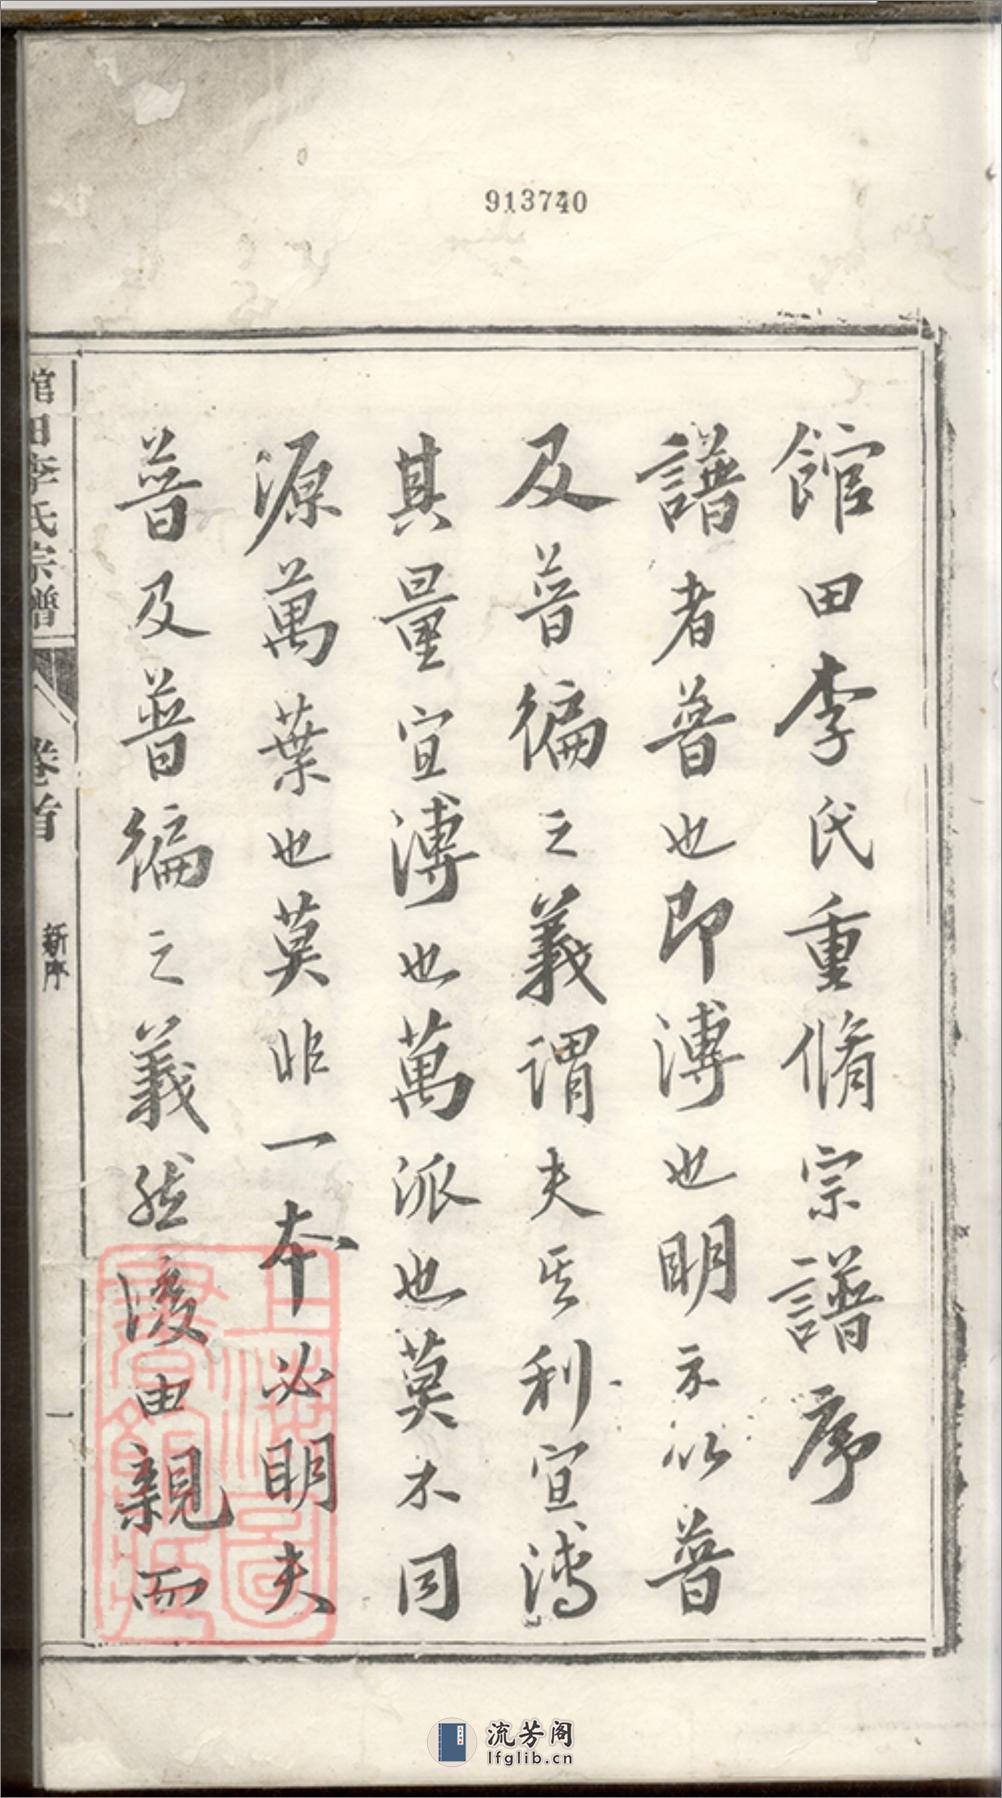 913740
館田李氏重脩宗譜序
譜者普也即溥也明示以普
及普徧之義謂夫其利宜溥
其量宜溥也萬派也莫不同
源萬葉也莫非一本必明夫
普及普徧之義然後由親而
館田李氏宗譜
卷首
新序
一
上海圖書館藏
流芳阁
lfglib.cn